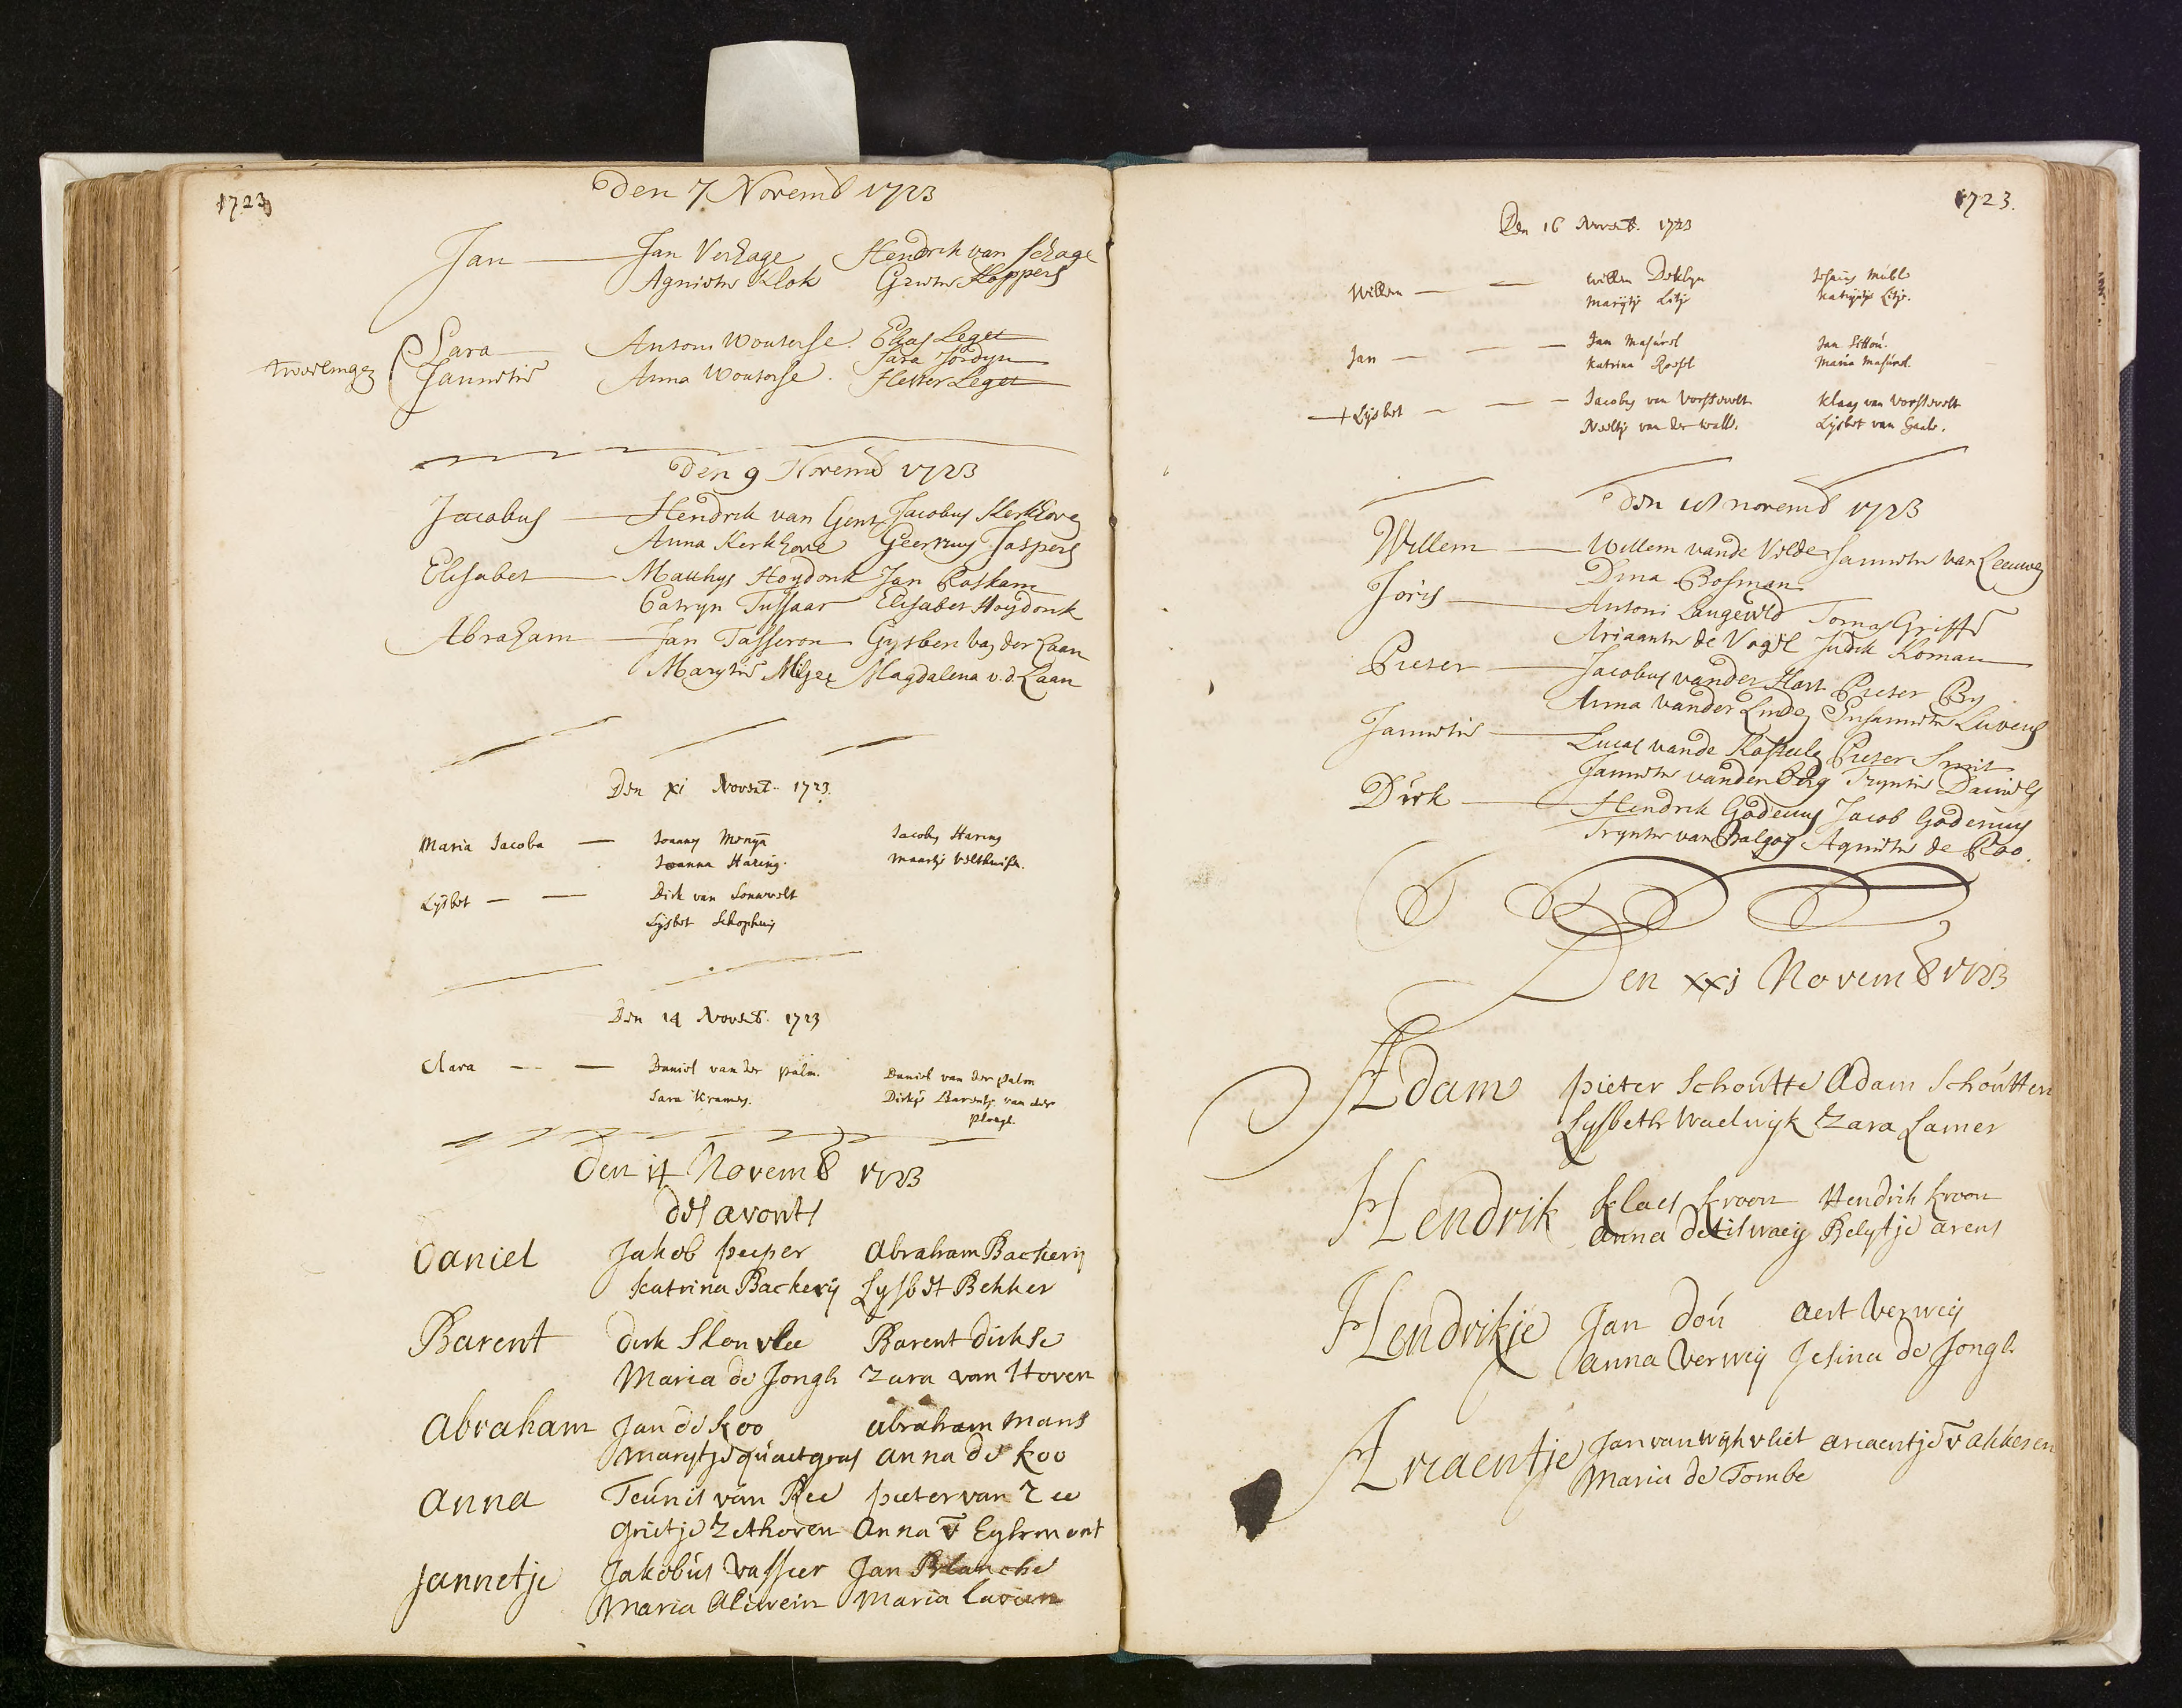 1723
Den 7 Novemb 1723
Jan Jan Verhage Hendrik van schage
Agnietie Klok Grietie Koppers
Sara Antoni Wouterse Elias Leget
tweelingen Jannetie Sara Jordyn
Anna Wouterse Hester Leget
Den 9 Novemb 1723
Jacobus Hendrik van Gent Jacobus Kerkhove
Anna Kerkhove Geertruy Jaspers
Elisabet Matthys Hoydonk Jan Paskam
Catryn Tussaar Elisabet Hoydonk
Abraham Jan Tasseron Gysbert van der Laan
Marytie Milzer Magdalena v.d Laan
Den xi Novemb. 1723.
Maria Jacoba Joanna Haring Jacobus Haring
Maartje
Lysbet Dirk van
Lysbet Schophuis
Den 14 Novemb. 1723
Clara Daniel van der palm. Daniel van der palm
Sara Kramers. Dirkje Barents van der
Ploegh.
Den 14 Novemb 1723
des avonts
Daniel Jakob peeper Abraham Backerij
katrina Backerij Lysbet Bekker
Barent dirk Slonvlee Barent dirkse
Maria de Jongh Zara van Hoven
Abraham Jan de koo abraham mans
Marytje quaetgras anna de koo
anna Teunis van Ree pieter van Zee
grietje Zethoven Anna v Eghmont
Jannetje Jakobus Vasseer Jan Blanche
Maria Aliwein Maria Lavien
1723.
Den 16 Novemb. 1723
Willem willem Deklyn
Marijtje Litje Katryntje Litje.
Jan Jan Masurel Jan Sitton.
Katrina Maria Masurel.
Lijsbet Jacobus van Vorstevelt Klaas van Vorstevelt
Neeltje van der wall. Lijsbet van Gaale.
den 18 novemb 1723
Willem Willem vande Velde Jannetie van Leeuwen
Dina Bosman
Joris Antoni Langeveld Tomas Griffi
Ariaantie de Vogel Judik Koman
Pieter Jacobus vander Hart Pieter By
Anna vander Linden Susannetie Luvens
Jannetie Lucas vande Kasteele Pieter Smit
Jannetie vanden Berg Tryntie Daniels
Dirk Hendrik Godenus Jacob Godenus
Tryntie van Balgoy Agnietie de Roo.
Den xxi Novemb 1723
Adam pieter Schoutte Adam Schoutten
Lysbeth Waelwyk Zara Lamer
Hendrik klaes kroon Hendrik kroon
anna Belytje arens
Hendrikje Jan dou aert Verweij
anna Verweij Jesina de Jongh
Ariaentje Jan van Wijkvliet ariaentje v akkeren
Maria de Tombe